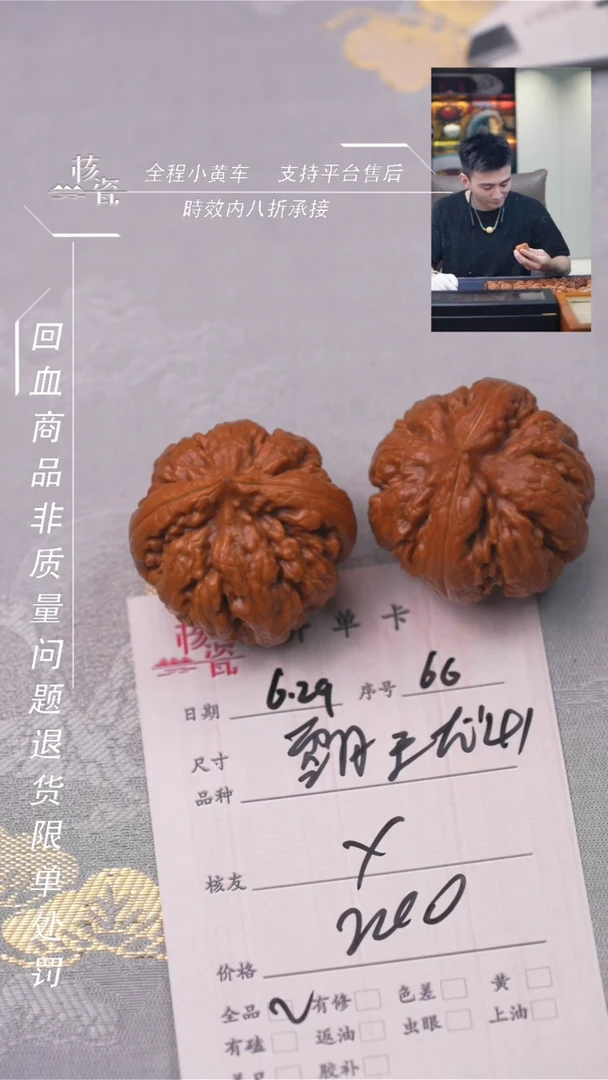 核瓷
全程小黄车 支持平台售后
時效内八折承接
回血商品非质量问题退货限单处罚
核瓷 开单卡
日期 6.29 序号 66
尺寸
品种
核友 X
价格
全品 有修 色差 黄
有磕 返油 虫眼 上油
胶补